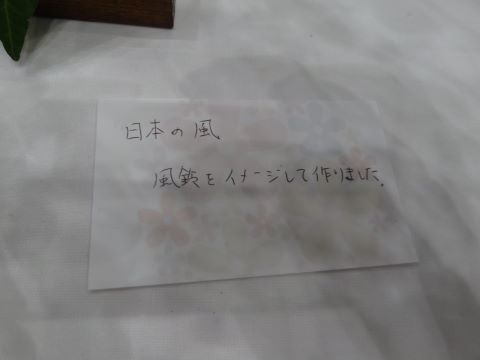 日本の風
風鈴をイメージして作りました。